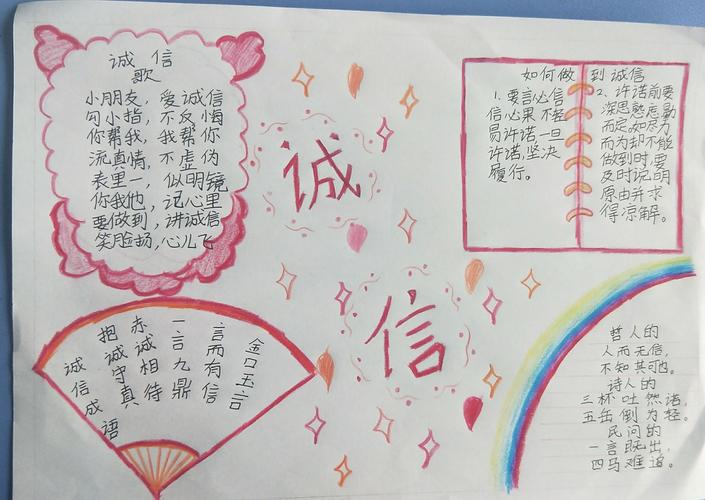 诚信
歌
小朋友，爱诚信
勾小指，不反悔
你帮我，我帮你
流真情，不虚伪
表里一，似明镜
你我他，记心里
要做到，讲诚信
笑脸扬，心儿飞
诚
信
如何做到诚信
1、要言必信
信必果 不轻
易许诺,一旦
许诺,坚决
履行。
2、许诺前要
深思虑
而定,如尽力
而为却不能
做到时,要
及时说明
原由并求
得谅解。
诚信成语
抱诚守真
赤诚相待
一言九鼎
言而有信
金口玉言
哲人的
人而无信,
不知其可也。
诗人的
三杯吐然诺,
五岳倒为轻。
民间的
一言既出,
四马难追。